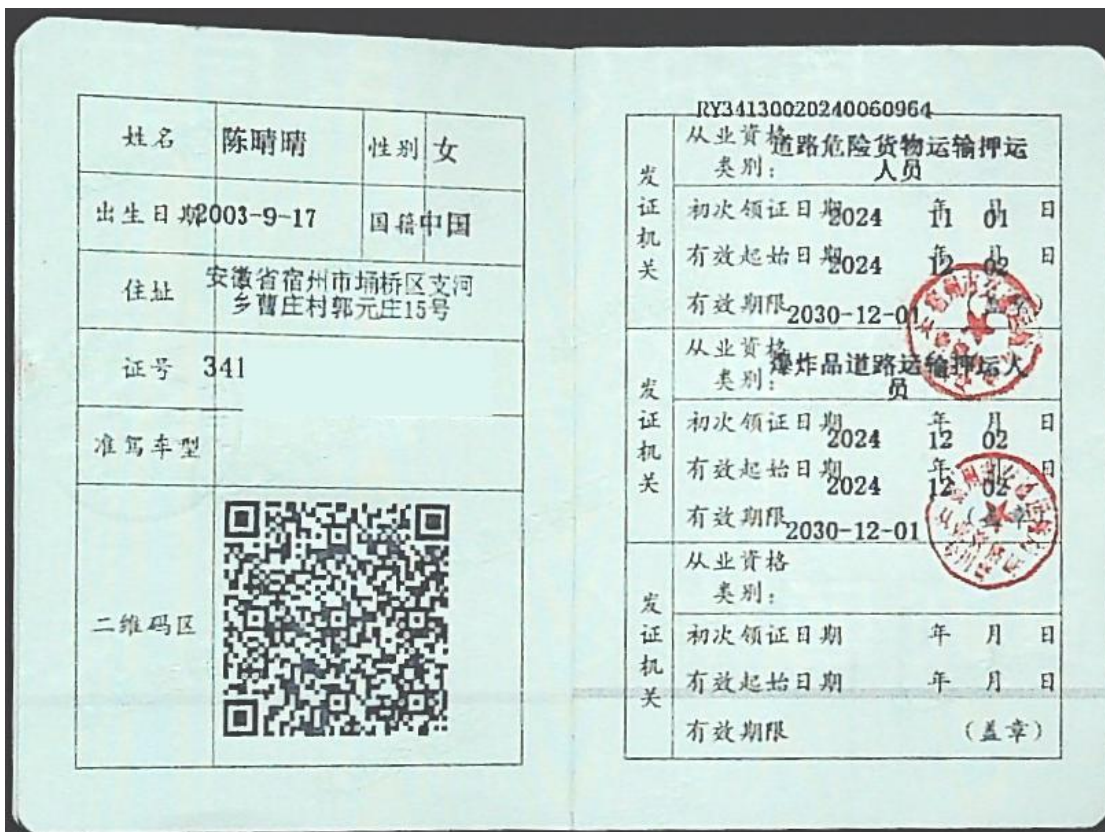 姓名 陈晴晴 性别 女
出生日期 2003-9-17 国籍 中国
住址 安徽省宿州市埇桥区支河
乡曹庄村郭元庄15号
证号 341
准驾车型
二维码区
RY34130020240060964
发证机关
从业资格类别: 道路危险货物运输押运
人员
初次领证日期 2024 年 11 月 01 日
有效起始日期 2024 年 12 月 02 日
有效期限 2030-12-01 (盖章)
发证机关
从业资格类别: 爆炸品道路运输押运人
员
初次领证日期 2024 年 12 月 02 日
有效起始日期 2024 年 12 月 02 日
有效期限 2030-12-01 (盖章)
发证机关
从业资格
类别:
初次领证日期 年 月 日
有效起始日期 年 月 日
有效期限 (盖章)